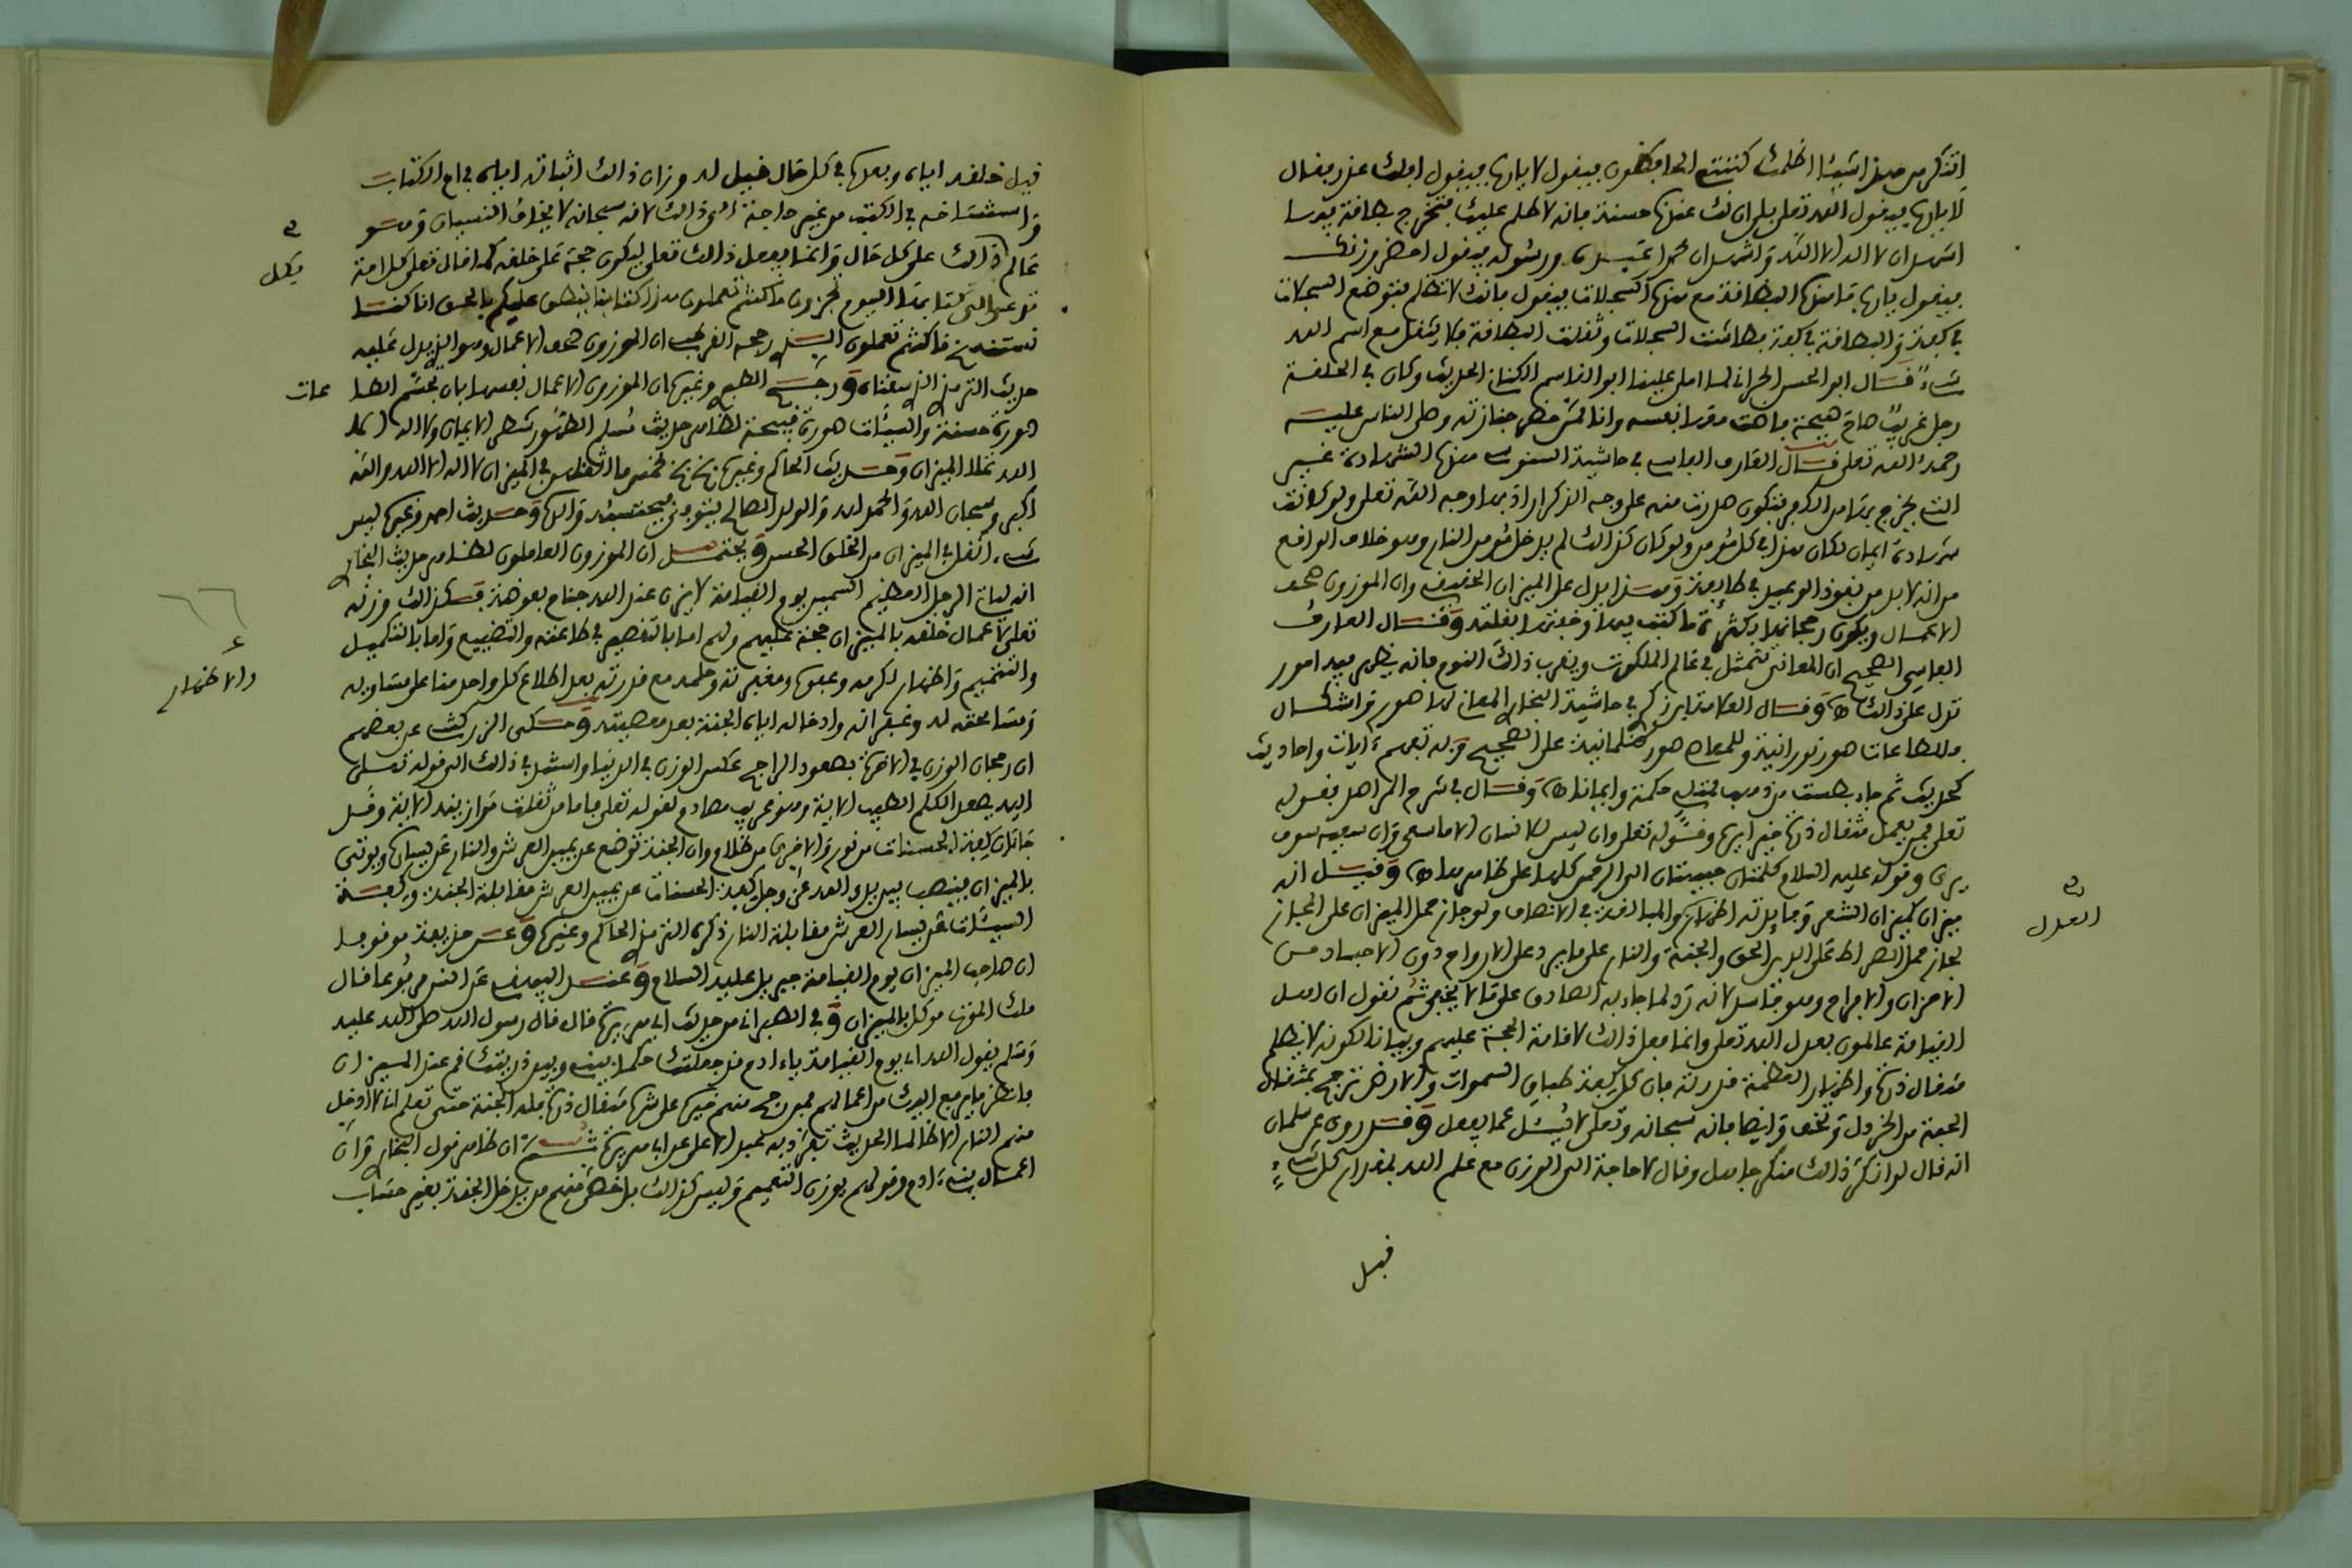 اتنكر من هذا شيئا اظلمك كتبتي الحافظون فيقول لا يارب فيقول افلك عذر فقال
لا يارب فيقول الله تعلى بلى ان لك عندنا حسنة فانه لا ظلم عليك فتخرج بطاقة فيها
اشهد ان لا اله الا الله واشهد ان محمدا عبده ورسوله فيقول احضر وزنك
فيقول يارب ما هذه البطاقة مع هذه السجلات فيقول فانك لا تظلم فتوضع السجلات
في كفة والبطاقة في كفة فطاشت السجلات وثقلت البطاقة فلا يثقل مع اسم الله
شيء قال ابو الحسن الحراني لما املى علينا ابو القاسم الكناني الحديث وكان في الحلقة
رجل غريب صاح صيحة فاضت معها نفسه وانا ممن حضر جنازته وصلى الناس عليه
رحمه الله تعلى قال العارف الفاسي في حاشية السنوسي هذه الشهادة غير
التي يخرج بها من الكفر فتكون صدرت منه على وجه الذكر اراد بها وجه الله تعلى ولو كانت
شهادة ايمان لكان هذا في كل مؤمن ولو كان كذلك لم يدخل مؤمن النار وهو خلاف الواقع
من انه لا بد من نفوذ الوعيد في طائفة وهذا يدل على الميزان الحقيقي وان الموزون صحف
الاعمال ويكون رجحانها بكثرة ما كتب فيها وخفتها بقلته وقال العارف
الفاسي الصحيح ان المعاني تتمثل في عالم الملكوت ويقرب ذلك النوم فانه يظهر فيه امور
تدل على ذلك وقال العلامة ابن زكري في حاشية البخاري المعاني لها صور قراشكال
فللطاعات صور نورانية وللمعاصي صور ظلمانية على الصحيح وبه تفهم ءايات واحاديث
كحديث ثم جاء بطست من ذهب ممتلي حكمة وايمانا وقال في شرح المراصد بقوله
تعلى فمن يعمل مثقال ذرة خيرا يره وقوله تعلى وان ليس للانسان الا ما سعى وان سعيه سوف
يرى وقوله عليه السلام كلمتان حبيبتان الى الرحمن كلها على ظاهرها وقيل انه
ميزان كميزان الشعر وفايدته اظهار العدل والمبالغة في الانصاف ولو جاز حمل الميزان على المجاز
لجاز حمل الصراط على الدين الحق والجنة والنار على ما يرد على الارواح دون الاجساد من
الاحزان والافراح وهو فاسد لانه رد لما جاء به الصادق على ما لا يخفى ثم نقول ان اهل
القيامة عالمون بعدل الله تعلى وانما فعل ذلك لاقامة الحجة عليهم وبيانا لكونه لا يظلم
مثقال ذرة واظهار العظمة قدرته فان كل كفة طباق السموات والارض ترجح بمثقال
الحبة من الخردل وتخف وايضا فانه سبحانه وتعلى لا يسئل عما يفعل وقد روي عن سلمان
انه قال لو انكر ذلك منكر جاهل وقال لا حاجة الى الوزن مع علم الله بمقدار كل شيء
قبل
العدل
قبل خلقه اياه وبعده في كل حال فيل له وزان ذلك اثباته اياه في ام الكتاب
واستنساخه في الكتب من غير حاجة الى ذلك لانه سبحانه لا يخاف النسيان وهو
عالم بكل ذلك على كل حال وانما يفعل ذلك تعلى ليكون حجة على خلقه كما قال تعلى كل امة
تدعى الى كتابها اليوم تجزون ما كنتم تعملون هذا كتابنا ينطق عليكم بالحق انا كنا
نستنسخ ما كنتم تعملون رجح القرطبي ان الموزون صحف الاعمال وهو الذي يدل عليه
حديث الترمذي الذي سقناه ورجح الطيبي وغيره ان الموزون الاعمال نفسها بان تجسم الطاعات
صورة حسنة والسيئات صورة قبيحة لظاهر حديث مسلم الطهور شطر الايمان ولا اله الا
الله تملا الميزان وحديث الحاكم وغيره بخ بخ لخمس ما اثقلهن في الميزان لا اله الا الله والله
اكبر وسبحان الله والحمد لله والولد الصالح يتوفى فيحتسبه والده وحديث احمد وغيره ليس
شيء اثقل في الميزان من الخلق الحسن ويحتمل ان الموزون العاملون لظاهر حديث البخاري
انه لياتي الرجل العظيم السمين يوم القيامة لا يزن عند الله جناح بعوضة فكذلك وزنه
تعلى لاعمال خلقه بالميزان حجة عليهم ولهم اما بالتقصير في طاعته والتضييع واما بالتكميل
والتتميم والاظهار لكرمه وعفوه ومغفرته وحلمه مع قدرته بعد اطلاع كل واحد منا على مساويه
ومسامحته له وغفرانه وادخاله اياه الجنة بعد معصيته وحكى الزركشي عن بعضهم
ان رجحان الوزن في الاخرة بصعود الراجح عكس الوزن في الدنيا واستدل في ذلك الى قوله تعلى
اليه يصعد الكلم الطيب الاية وهو غريب مصادم لقوله تعلى فاما من ثقلت موازينه الاية وقد
جاء ان كفة الحسنات من نور والاخرى من ظلام وان الجنة توضع عن يمين العرش والنار عن يساره ويوتى
بالميزان فينصب بين يدي الله عز وجل كفة الحسنات عن يمين العرش مقابلة الجنة وكفة
السيئات عن يسار العرش مقابلة النار ذكره الترمذي الحاكم وغيره وعن حذيفة موقوفا
ان صاحب الميزان يوم القيامة جبريل عليه السلام وعند البيهقي عن انس مرفوعا قال
ملك الموت موكل بالميزان وفي الطبراني من حديث ابي هريرة قال قال رسول الله صلى الله عليه
وسلم يقول الله يوم القيامة ياءادم قد جعلتك حكما بيني وبين ذريتك قم عند الميزان
فانظر ما يرفع اليك من اعمالهم فمن رجح منهم خيره على شره مثقال ذرة فله الجنة حتى تعلم اني لا ادخل
منهم النار الا ظالما الحديث تفرد به عبد الاعلى عن ابي هريرة ثم ان ظاهر قول البخاري وان
اعمال بني ءادم وقولهم يوزن التعميم وليس كذلك بل خص منهم من يدخل الجنة بغير حساب
بكل
عات
والاظهار